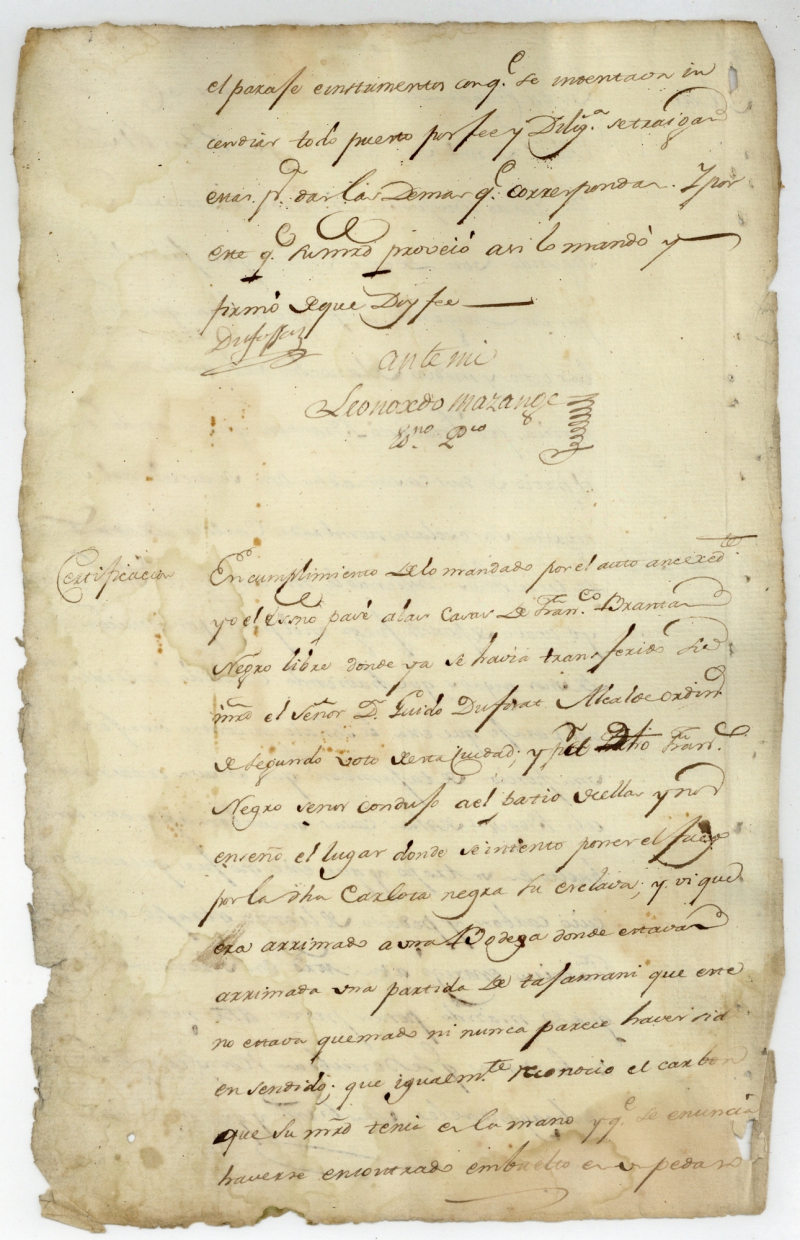 el paraje e instrumentos conq.e se intentaron in
cendiar todo puesto por fee y Dilig.a se traigan
estas p.a dar las Demas q.e correspondan. Y por
este q.e su mrd proveió asi lo mandó y
firmó de que Doy fee
Dufossat
ante mi
Leonardo Mazange
Es.no Pu.co
Certificacion
En cumplimiento de lo mandado por el auto anteced.te
yo el Es.no pasé a las Casas de Fran.co Brantan
Negro libre donde ya se havia transferido su
mrd el Señor D.n Guido Dufosat Alcalde ordin.o
de segundo voto de esta Ciudad; y p.r el dho Fran.co
Negro se nos condujo a el patio de ellas y nos
enseño el lugar donde se intento poner el fuego
por la dha Carlota negra su esclava; y vi que
era arrimado a una Bodega donde estavan
arrimada una partida de tajamani que este
no estava quemado ni nunca parece haver sid
ensendido; que igualm.te reconocio el carbon
que su mrd tenia en la mano y q.e se enuncia
haverse encontrado embuelto en un pedaso